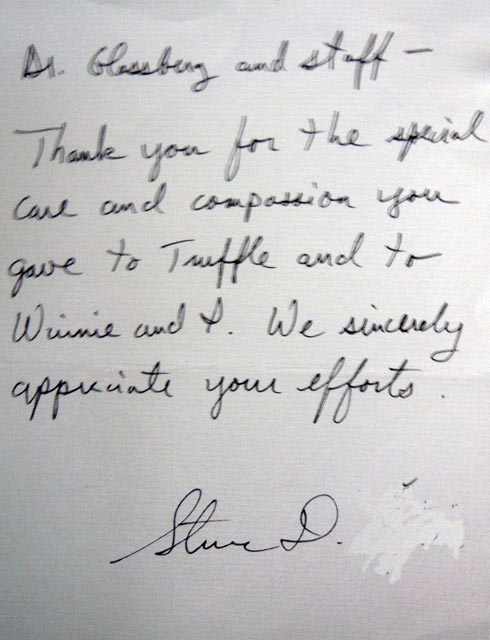 Dr. Glassberg and staff —
Thank you for the special
care and compassion you
gave to Truffle and to
Winnie and I. We sincerely
appreciate your efforts.
Steve D.